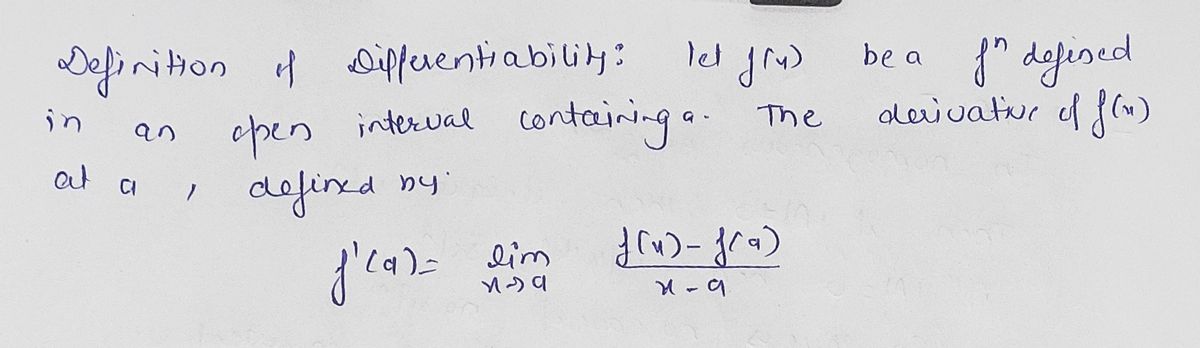 Definition of Differentiability: let f(x) be a fⁿ defined
in an open interval containing a. The derivative of f(x)
at a , defined by:
f'(a) = lim x→a f(x) - f(a) / x - a